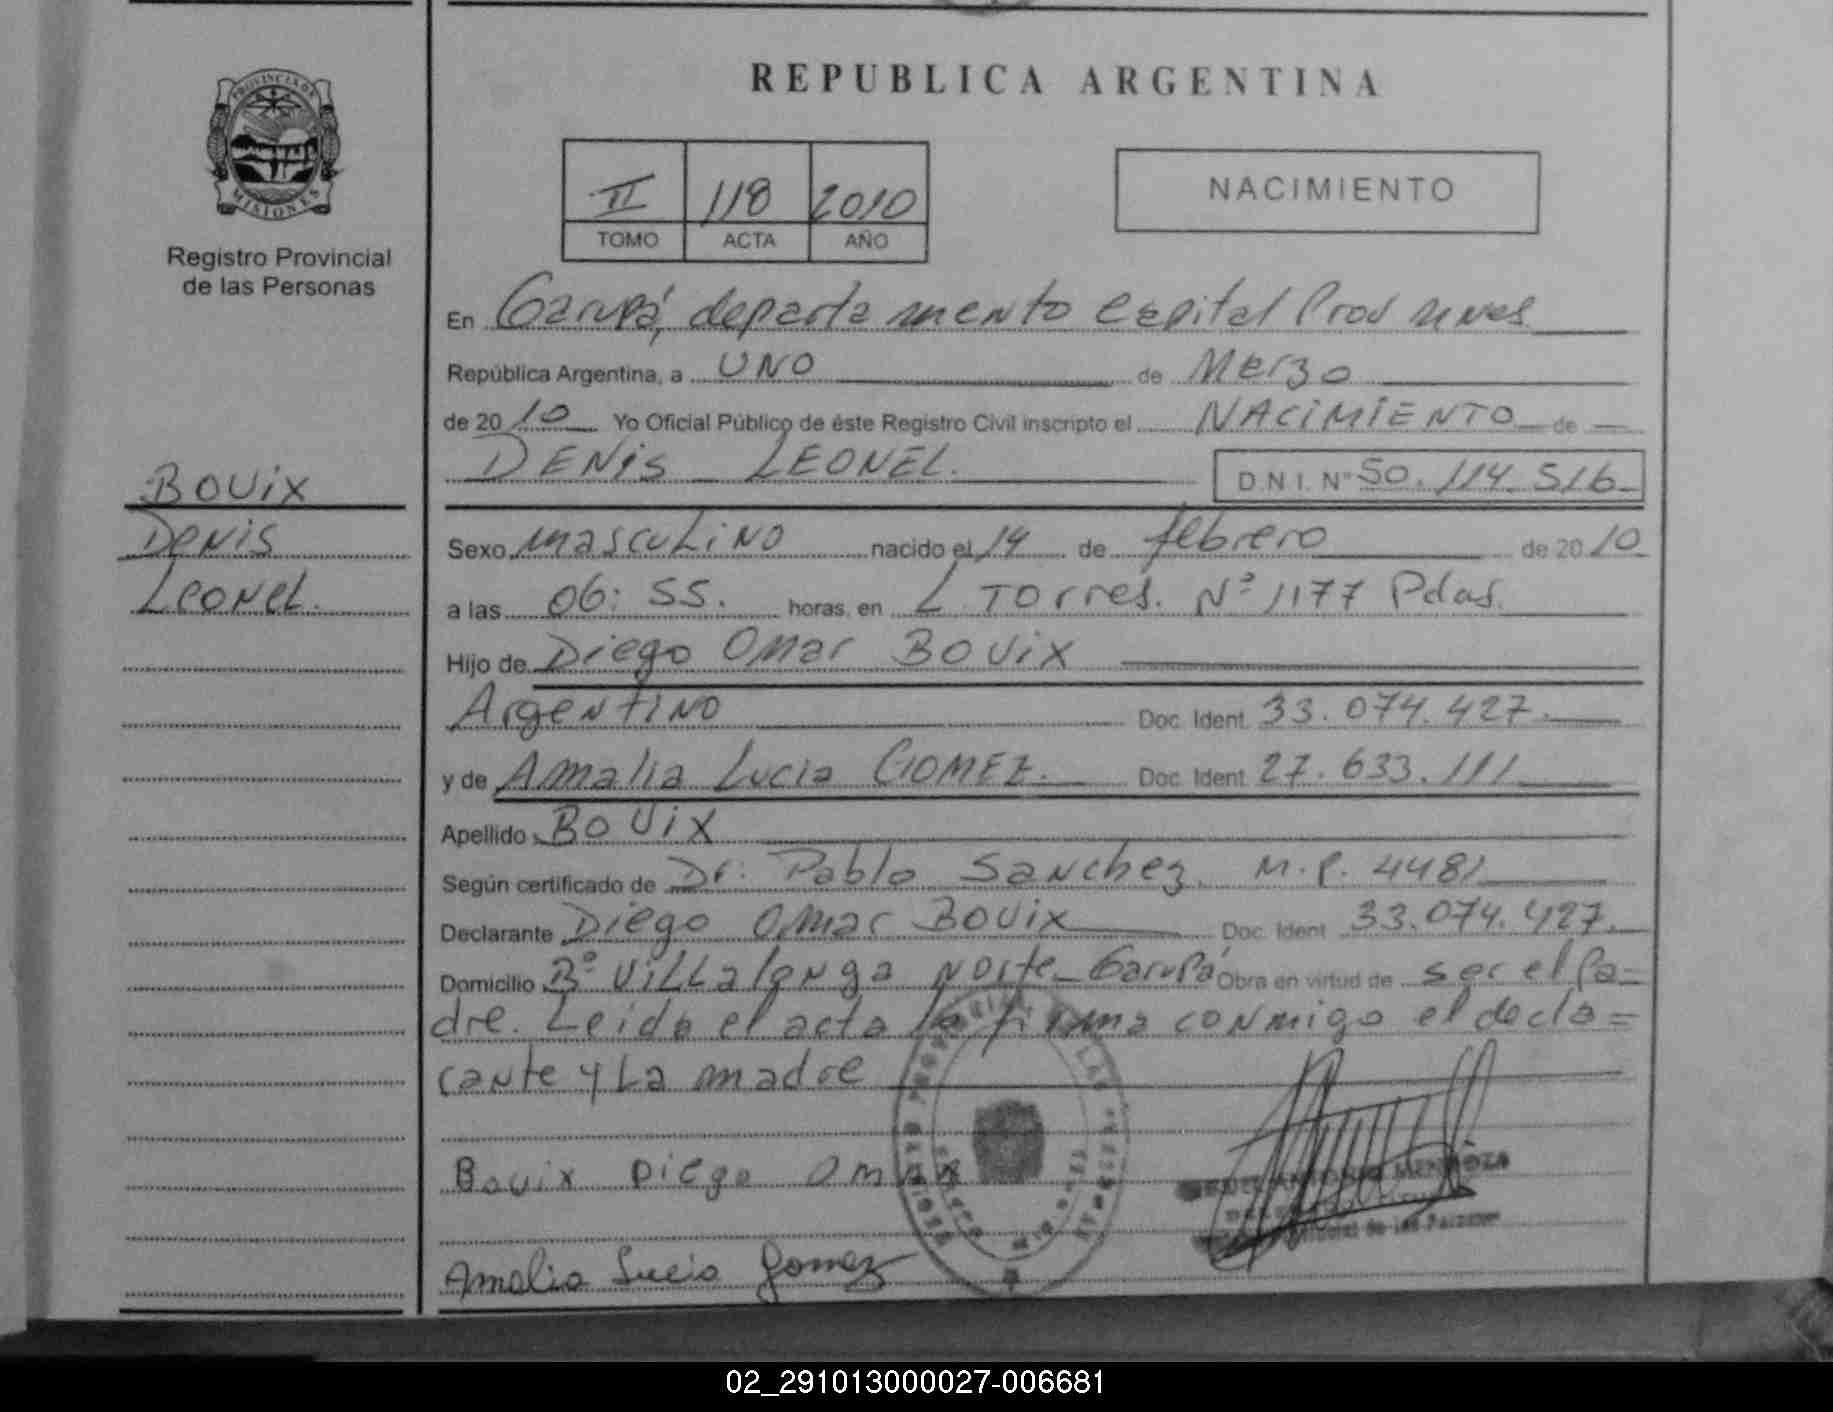 REPUBLICA ARGENTINA
PROVINCIA DE
MISIONES
Registro Provincial
de las Personas
II 118 2010
TOMO ACTA AÑO
NACIMIENTO
En Garupá, departamento Capital Prov Mnes
República Argentina, a UNO de Marzo
de 2010 Yo Oficial Público de éste Registro Civil inscripto el NACIMIENTO de
DENIS LEONEL. D.N.I. Nº 50.114.516
BOUiX
DENIS
LEONEL.
Sexo masculino nacido el 14 de febrero de 2010
a las 06:55. horas, en L. Torres. Nº 1177 Pdas.
Hijo de Diego Omar BOUiX
Argentino Doc. Ident. 33.074.427.
y de Amalia Lucia GOMEZ. Doc. Ident. 27.633.111
Apellido BOUiX
Según certificado de Dr: Pablo Sanchez. M.P. 4481
Declarante Diego Omar Bouix Doc. Ident. 33.074.427.
Domicilio Bº Villalonga Norte-Garupá Obra en virtud de ser el Pa-
dre. Leida el acta la firma conmigo el decla=
rante y La madre
Bouix Diego Omar
ANTONIO MENDOZA
de las Personas
Amalia Lucia Gomez
02_291013000027-006681